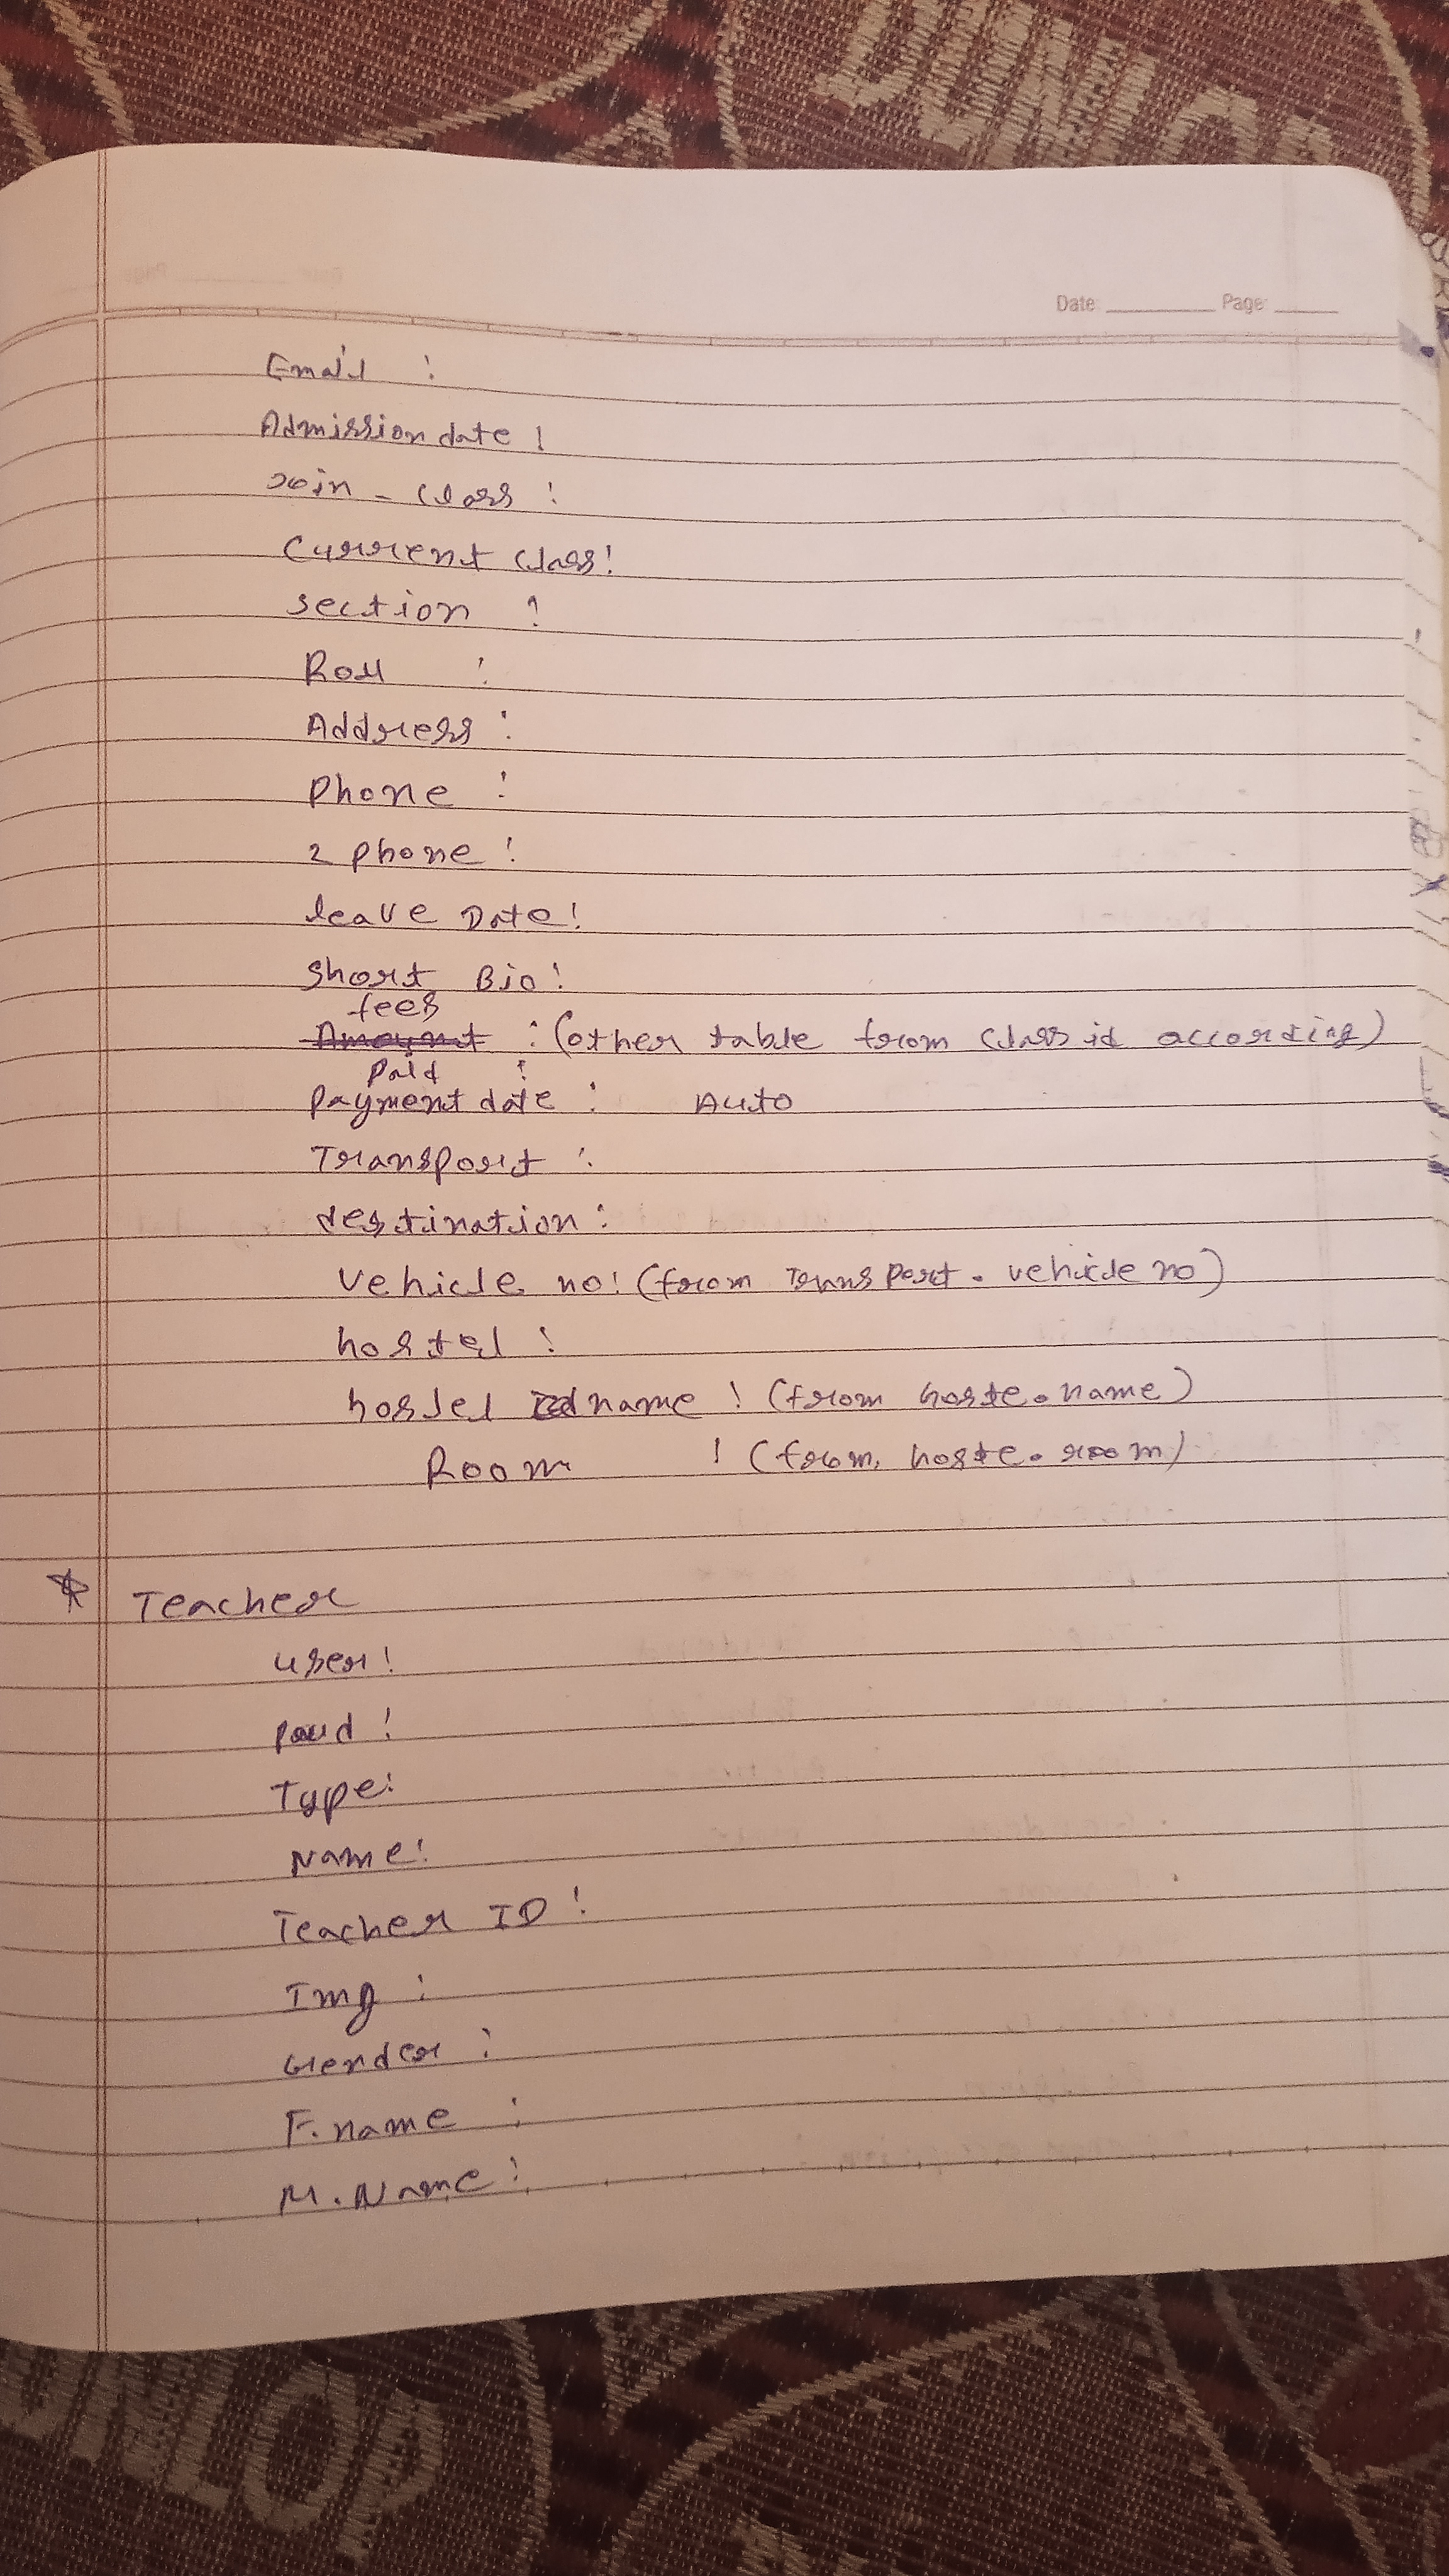 DUNLOP
Date: Page:
Email :
Admission date :
Join - Class :
Current Class :
Section :
Roll :
Address :
Phone :
2 phone :
leave Date :
Short Bio :
fees
Amount : (other table from class id according)
Paid :
Payment date : Auto
Transport :
destination :
Vehicle no : (from Transport . vehicle no)
hostel :
hostel name : (from hoste . name)
Room : (from hoste . room)
Teacher
user :
Type :
Name :
Teacher ID :
Img :
Gender :
F. name :
M. Name :
DUNLOP